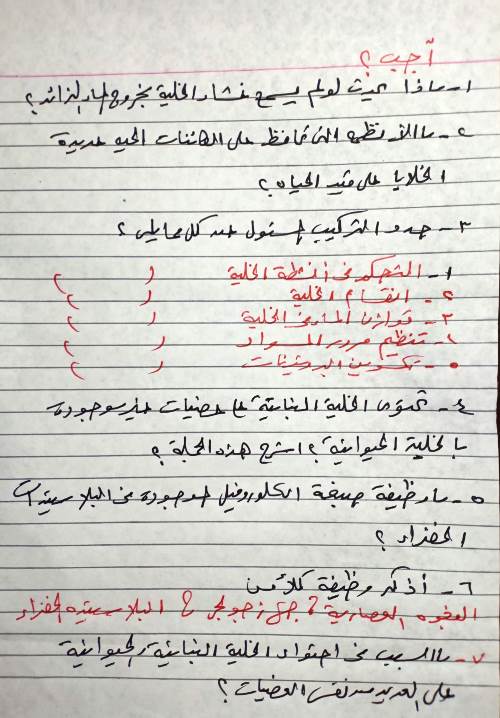 أجب ؟
١- ماذا يحدث لو لم يسمح غشاء الخلية بخروج الماء الزائد ؟
٢- ما الأنظمة التى تحافظ على الكائنات الحيه عديدة
الخلايا على قيد الحياه ؟
٣- حدد التركيب المسئول عن كل مما يلى ؟
١- التحكم فى أنشطة الخلية ( )
٢- انقسام الخلية ( )
٣- توازن الماء فى الخلية ( )
٤- تنظيم مرور المواد ( )
٥- تكوين البروتينات ( )
٤- تحتوى الخلية النباتية على عضيات غير موجودة
بالخلية الحيوانية ؟ اشرح هذه الجملة ؟
٥- ما وظيفة صبغة الكلوروفيل الموجودة فى البلاستيدات
الخضراء ؟
٦- أذكر وظيفة كلاً من
الفجوه العصارية ؟ جهاز جولجى ؟ البلاستيده الخضراء
٧- ما السبب فى احتواء الخلية النباتية والحيوانية
على العديد من نفس العضيات ؟